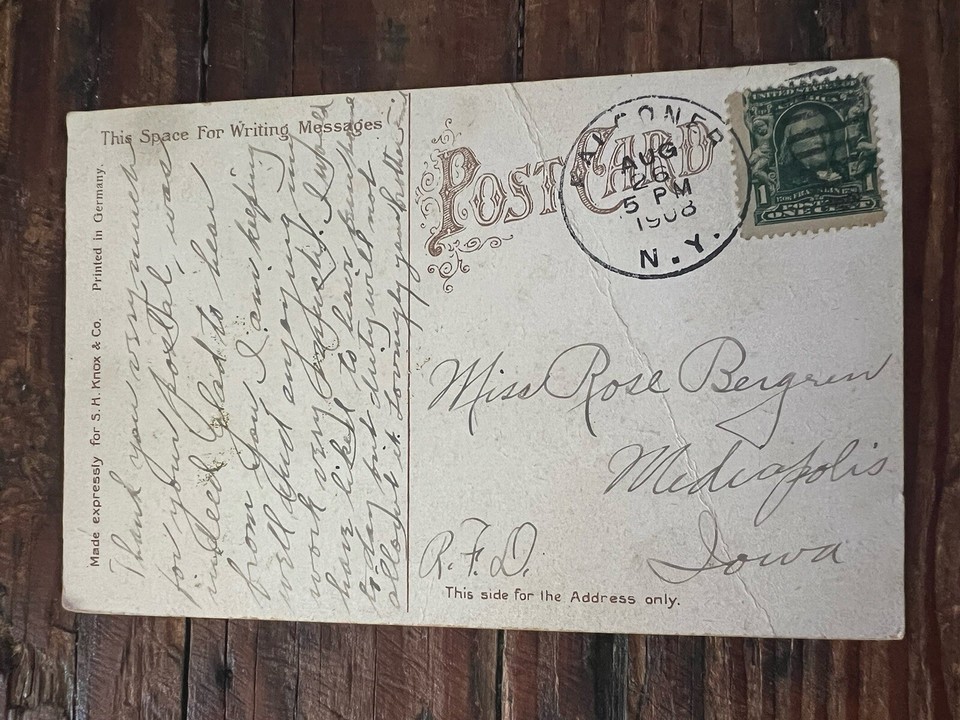 This Space For Writing Messages
Made expressly for S. H. Knox & Co. Printed in Germany.
Thank you very much
for your postal, was
indeed glad to hear
from you. I am keeping
well and enjoying my
work very much. I would
have liked to have been
today but duty will not
allow it. Lovingly your
POST CARD
FALCONER
AUG
26
5 PM
1908
N.Y.
UNITED STATES OF
FRANKLIN
1
ONE CENT
Miss Rose Bergren
Mediapolis
Iowa
R.F.D.
This side for the Address only.